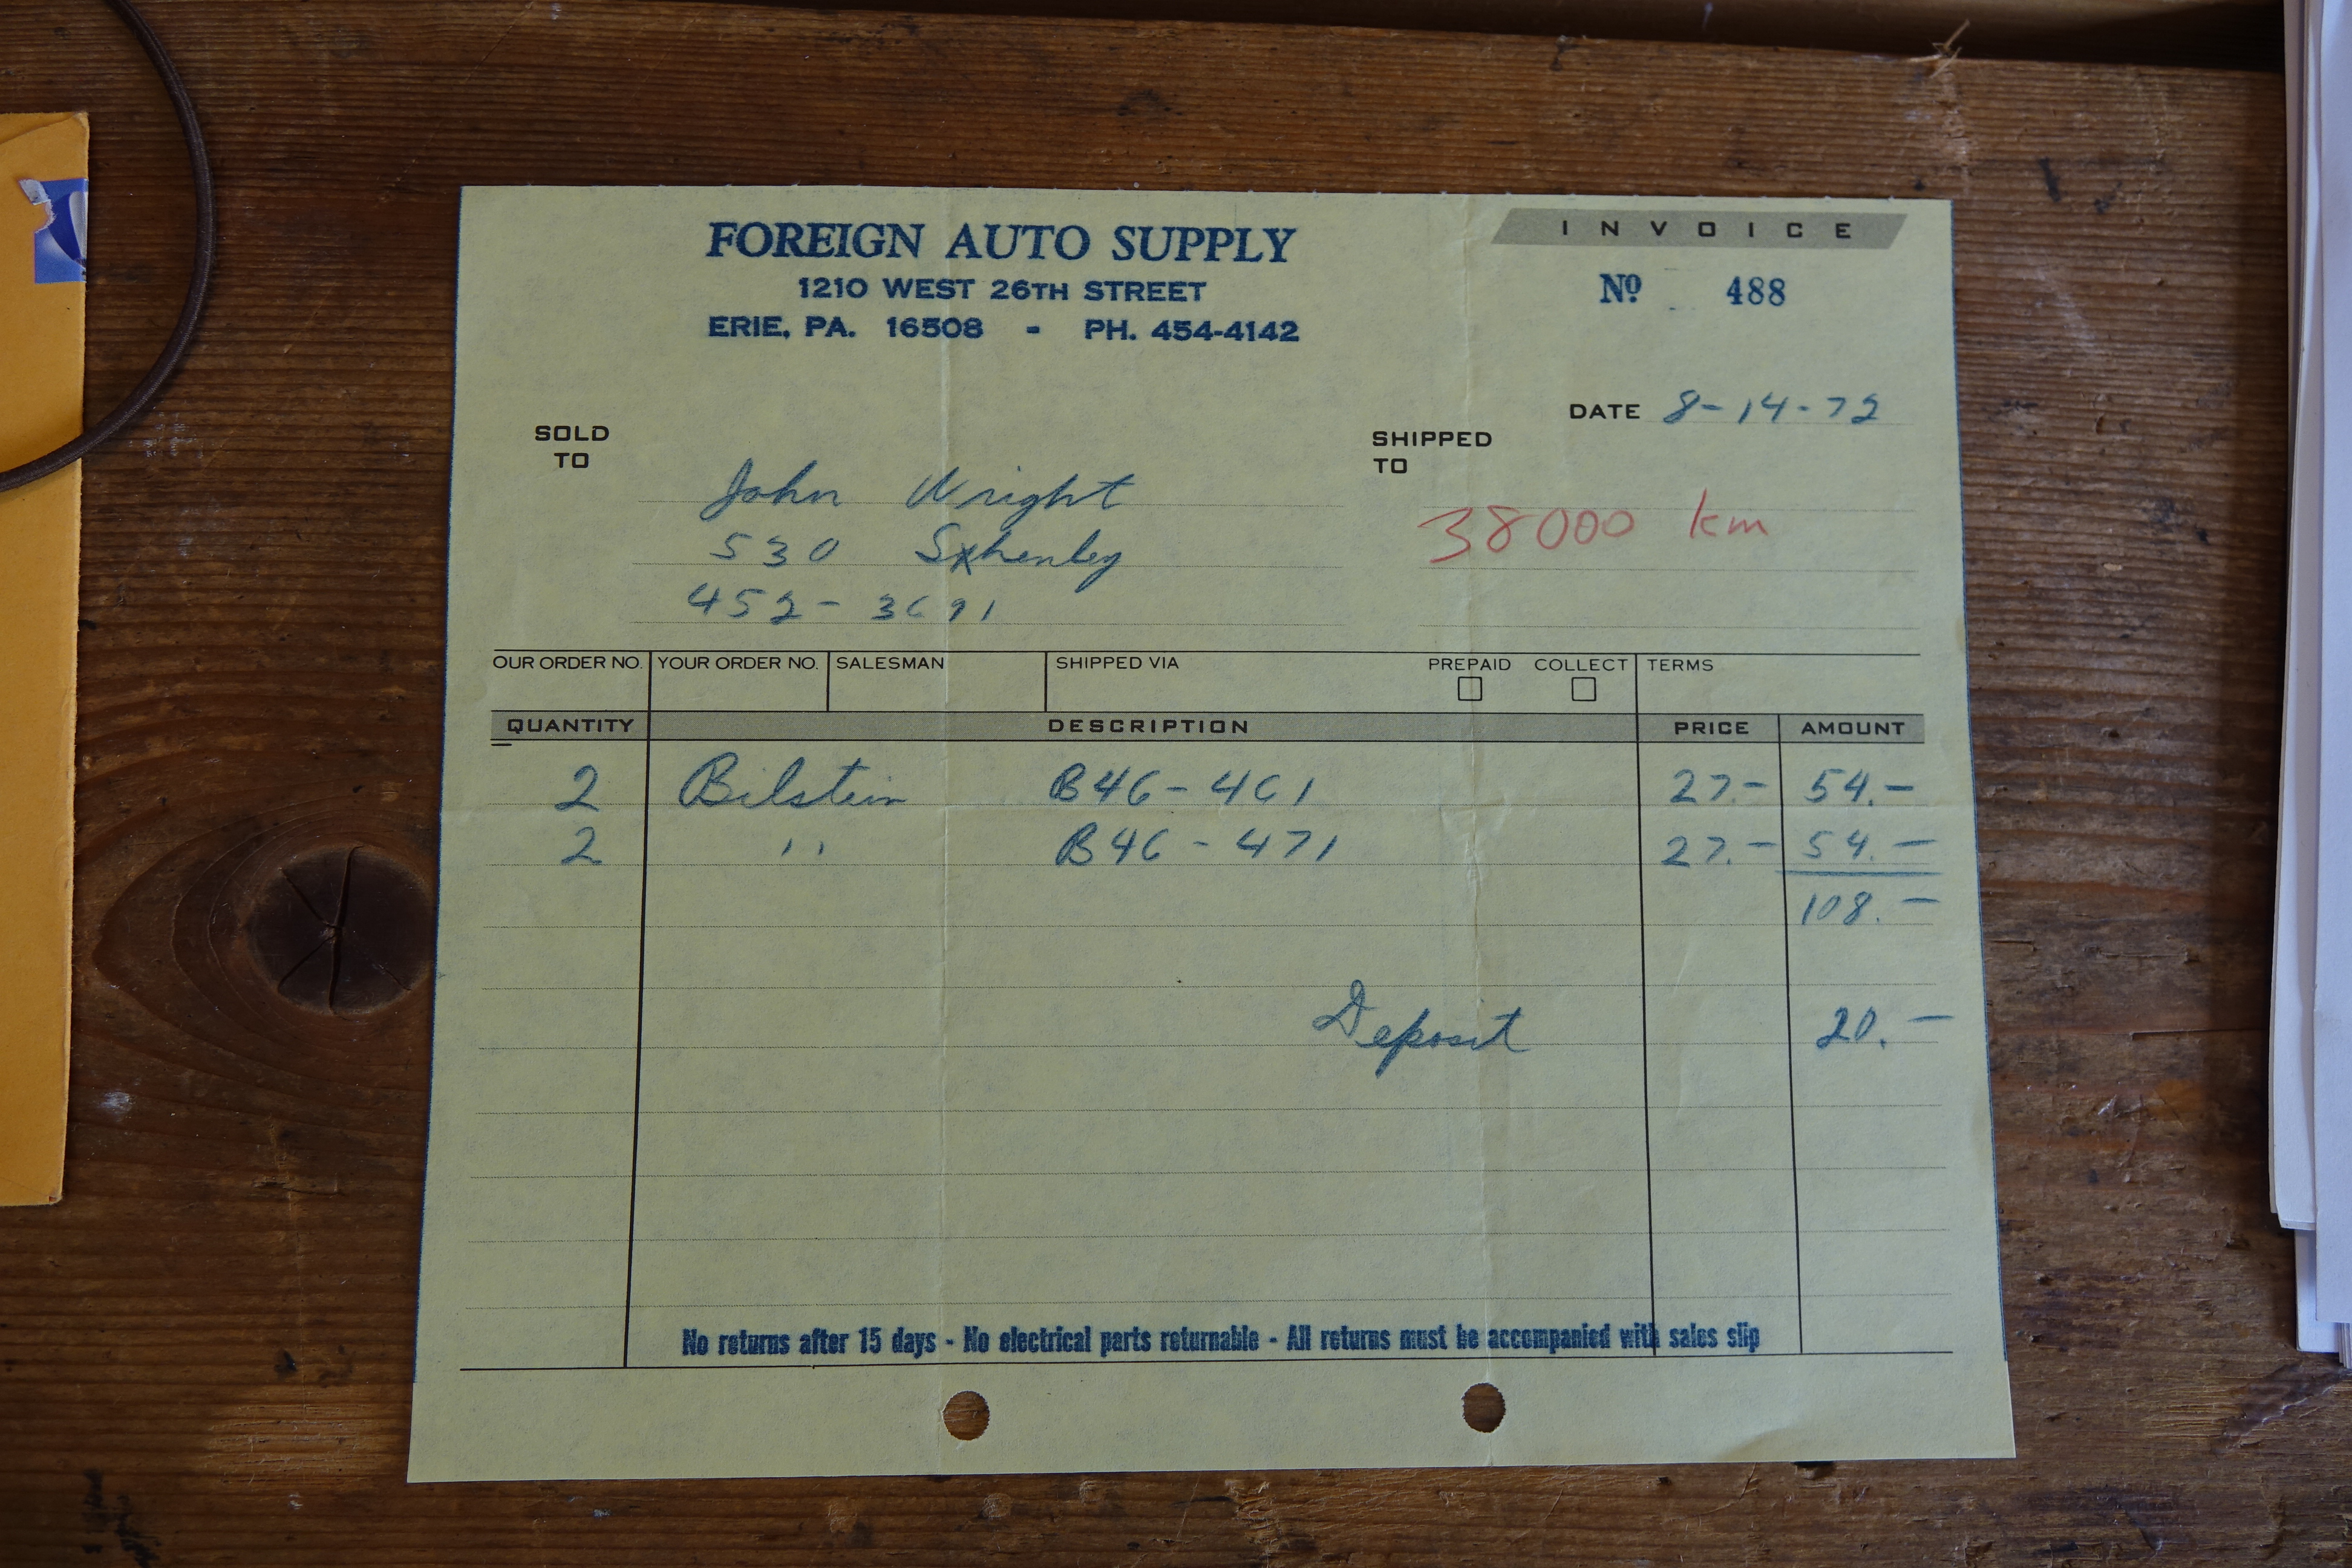 FOREIGN AUTO SUPPLY
1210 WEST 26TH STREET
ERIE, PA. 16508 - PH. 454-4142
INVOICE
Nº 488
DATE 8-14-72
SOLD TO
John Wright
530 Sxhenley
452-3691
SHIPPED TO
38000 km
OUR ORDER NO. YOUR ORDER NO. SALESMAN SHIPPED VIA PREPAID COLLECT TERMS
QUANTITY DESCRIPTION PRICE AMOUNT
2 Bilstein B46-461 27.- 54.-
2 '' B46-471 27.- 54.-
108.-
Deposit 20.-
No returns after 15 days - No electrical parts returnable - All returns must be accompanied with sales slip